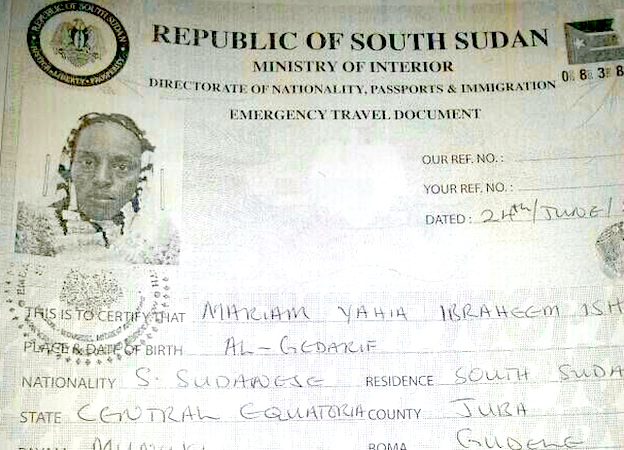 REPUBLIC OF SOUTH SUDAN
JUSTICE · LIBERTY · PROSPERITY
REPUBLIC OF SOUTH SUDAN
MINISTRY OF INTERIOR
DIRECTORATE OF NATIONALITY, PASSPORTS & IMMIGRATION
EMERGENCY TRAVEL DOCUMENT
OUR REF. NO. :
YOUR REF. NO. :
DATED : 24th/JUNE/
THIS IS TO CERTIFY THAT MARIAM YAHIA IBRAHEEM ISH
PLACE & DATE OF BIRTH AL-GEDARIF
NATIONALITY S. SUDANESE RESIDENCE SOUTH SUDA
STATE CENTRAL EQUATORIA COUNTY JUBA
BOMA GUDELE